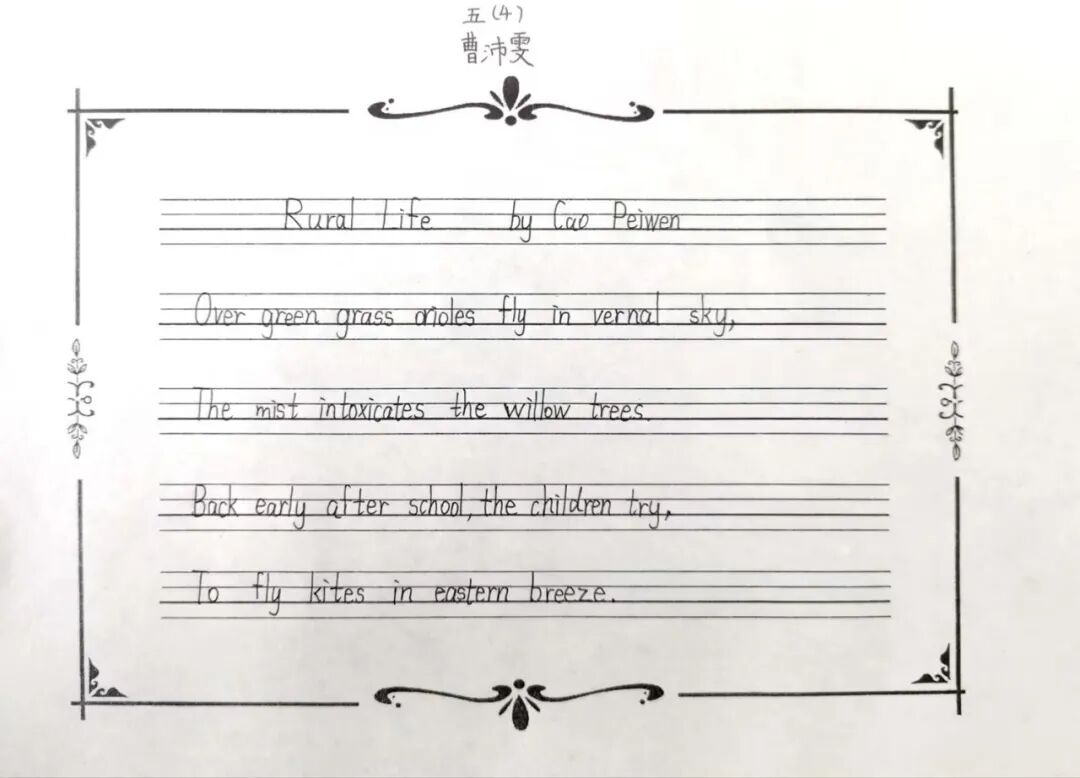 五(4)
曹沛雯
Rural Life by Cao Peiwen
Over green grass orioles fly in vernal sky,
The mist intoxicates the willow trees.
Back early after school, the children try,
To fly kites in eastern breeze.